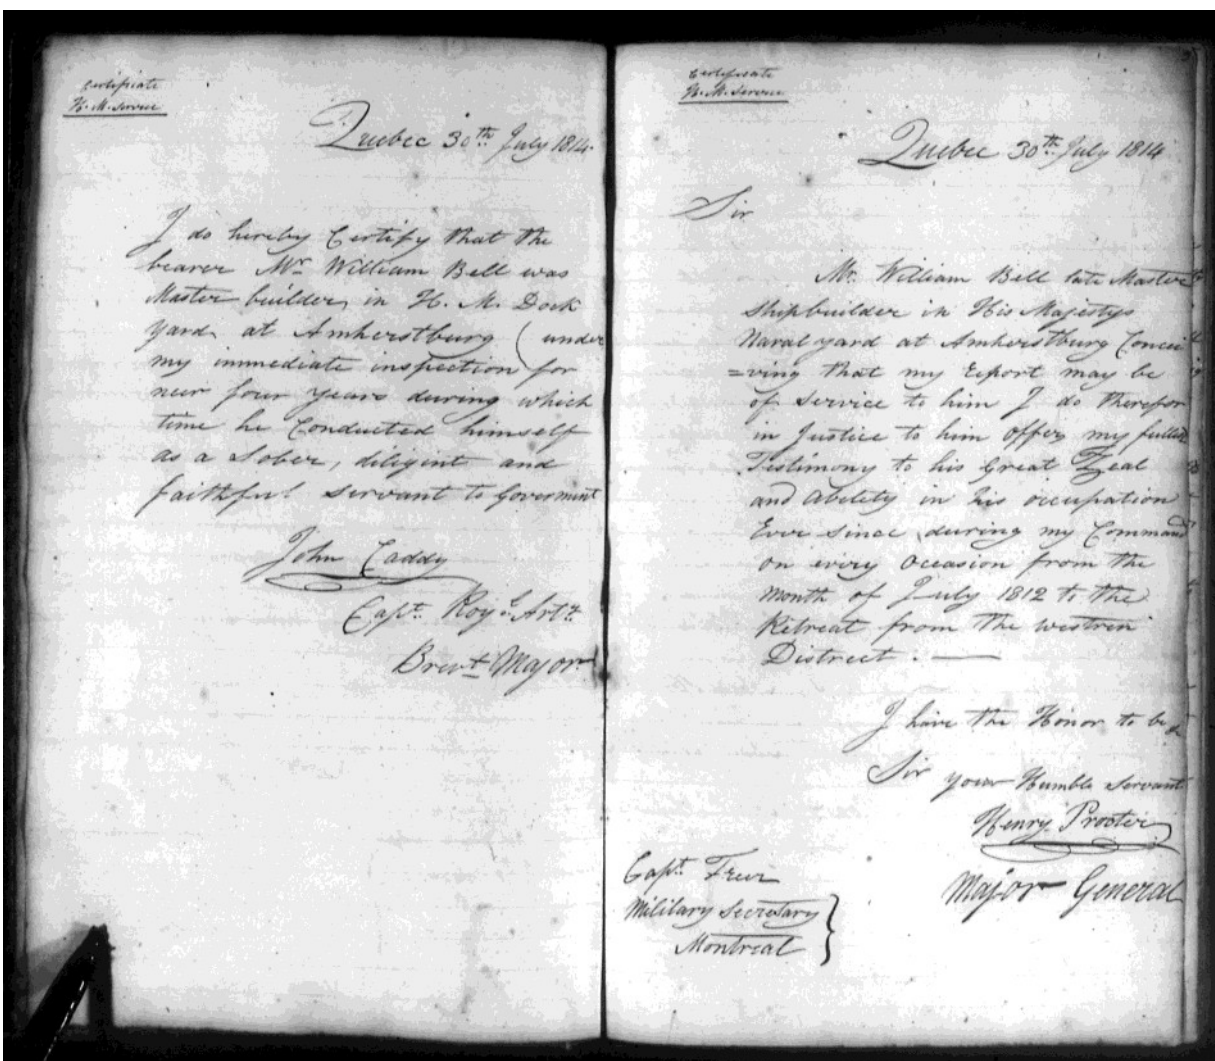 Certificate
H. M. Service
Quebec 30th July 1814.
I do hereby Certify that the
bearer Mr William Bell was
Master builder in H. M. Dock
Yard at Amherstburg (under
my immediate inspection for
near four years during which
time he Conducted himself
as a Sober, diligint and
faithful Servant to Goverment
John Caddy
Capt. Roy.l Arty.
Brevt Major
Certificate
H. M. Service
Quebec 30th July 1814
Sir
Mr. William Bell late Master
Shipbuilder in His Majestys
Naval yard at Amherstburg Concei
=ving that my Report may be
of Service to him I do therefor
in Justice to him offer my fullest
Testimony to his Great Zeal
and Abelety in his occupation
Ever Since during my Command
on every Occasion from the
Month of July 1812 to the
Retreat from the westrin
District. —
I have the Honor to be &
Sir your Humble Servant
Henry Procter
Major General
Capt. Freer
Military Secretary
Montreal